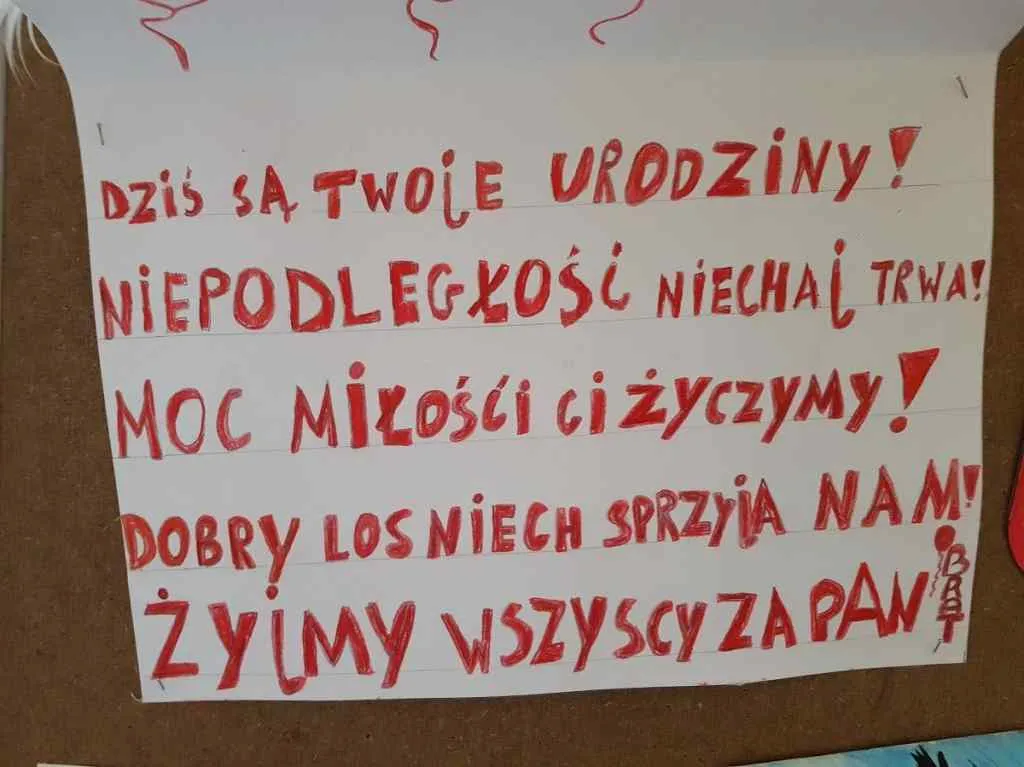 DZIŚ SĄ TWOJE URODZINY!
NIEPODLEGŁOŚĆ NIECHAJ TRWA!
MOC MIŁOŚĆI CI ŻYCZYMY!
DOBRY LOS NIECH SPRZYJA NAM!
ŻYJMY WSZYSCY ZA PAN BRAT